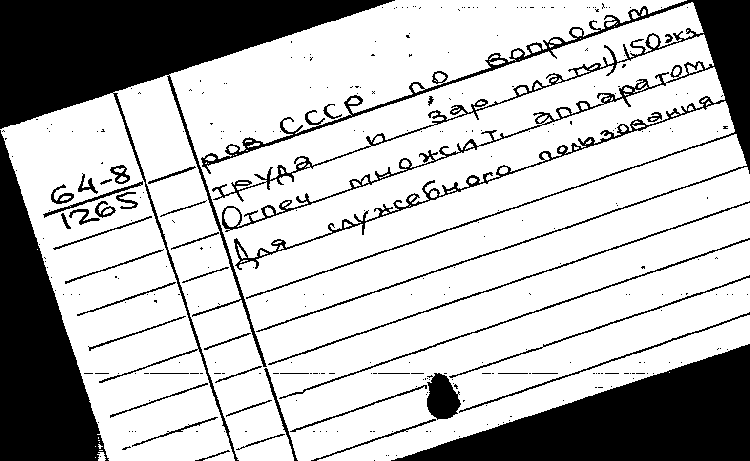 ров СССР по вопросам
труда и зар. платы) 150 экз.
Отпеч множит. аппаратом.
Для служебного пользования.
64-8
1265